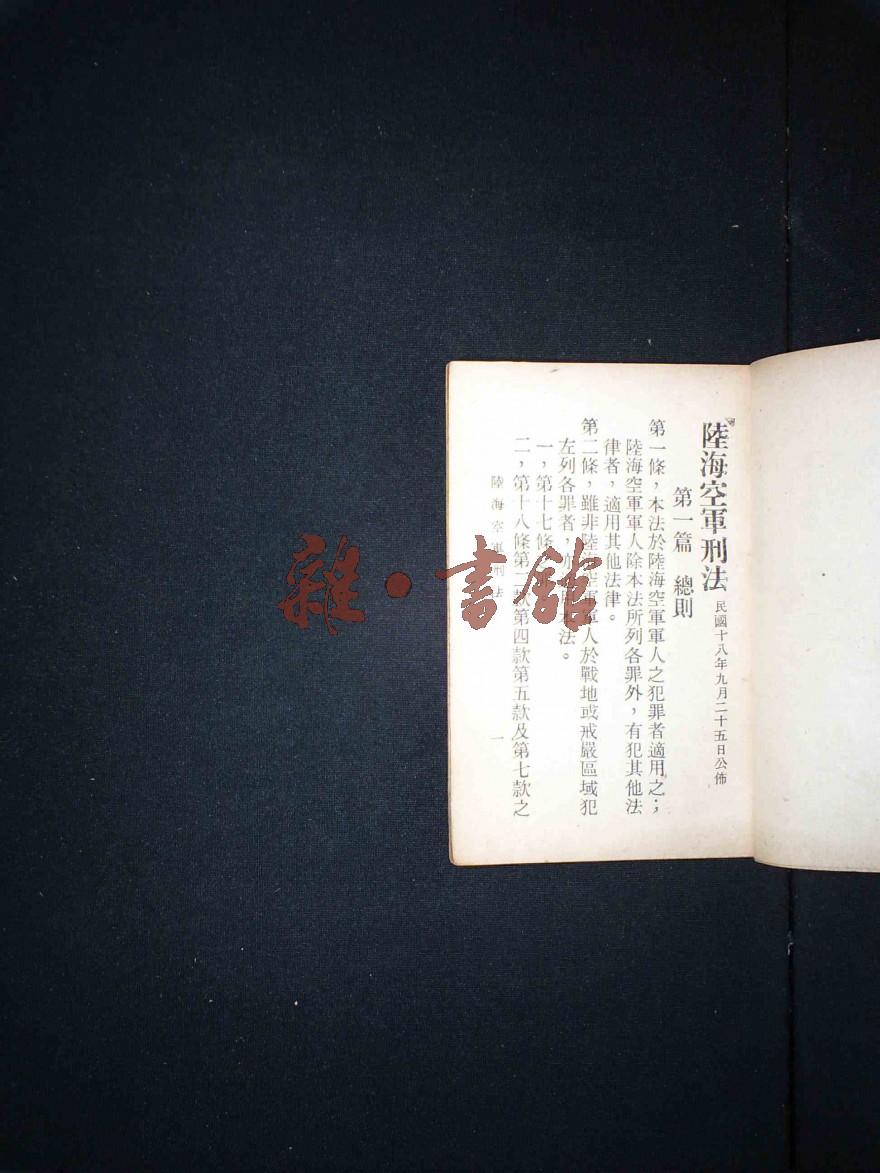 陸海空軍刑法 民國十八年九月二十五日公佈
第一篇 總則
第一條，本法於陸海空軍軍人之犯罪者適用之；
陸海空軍軍人除本法所列各罪外，有犯其他法
律者，適用其他法律。
第二條，雖非陸海空軍軍人於戰地或戒嚴區域犯
左列各罪者，亦適用本法。
一，第十七條
二，第十八條第二款第四款第五款及第七款之
陸海空軍刑法
一
雜·書館